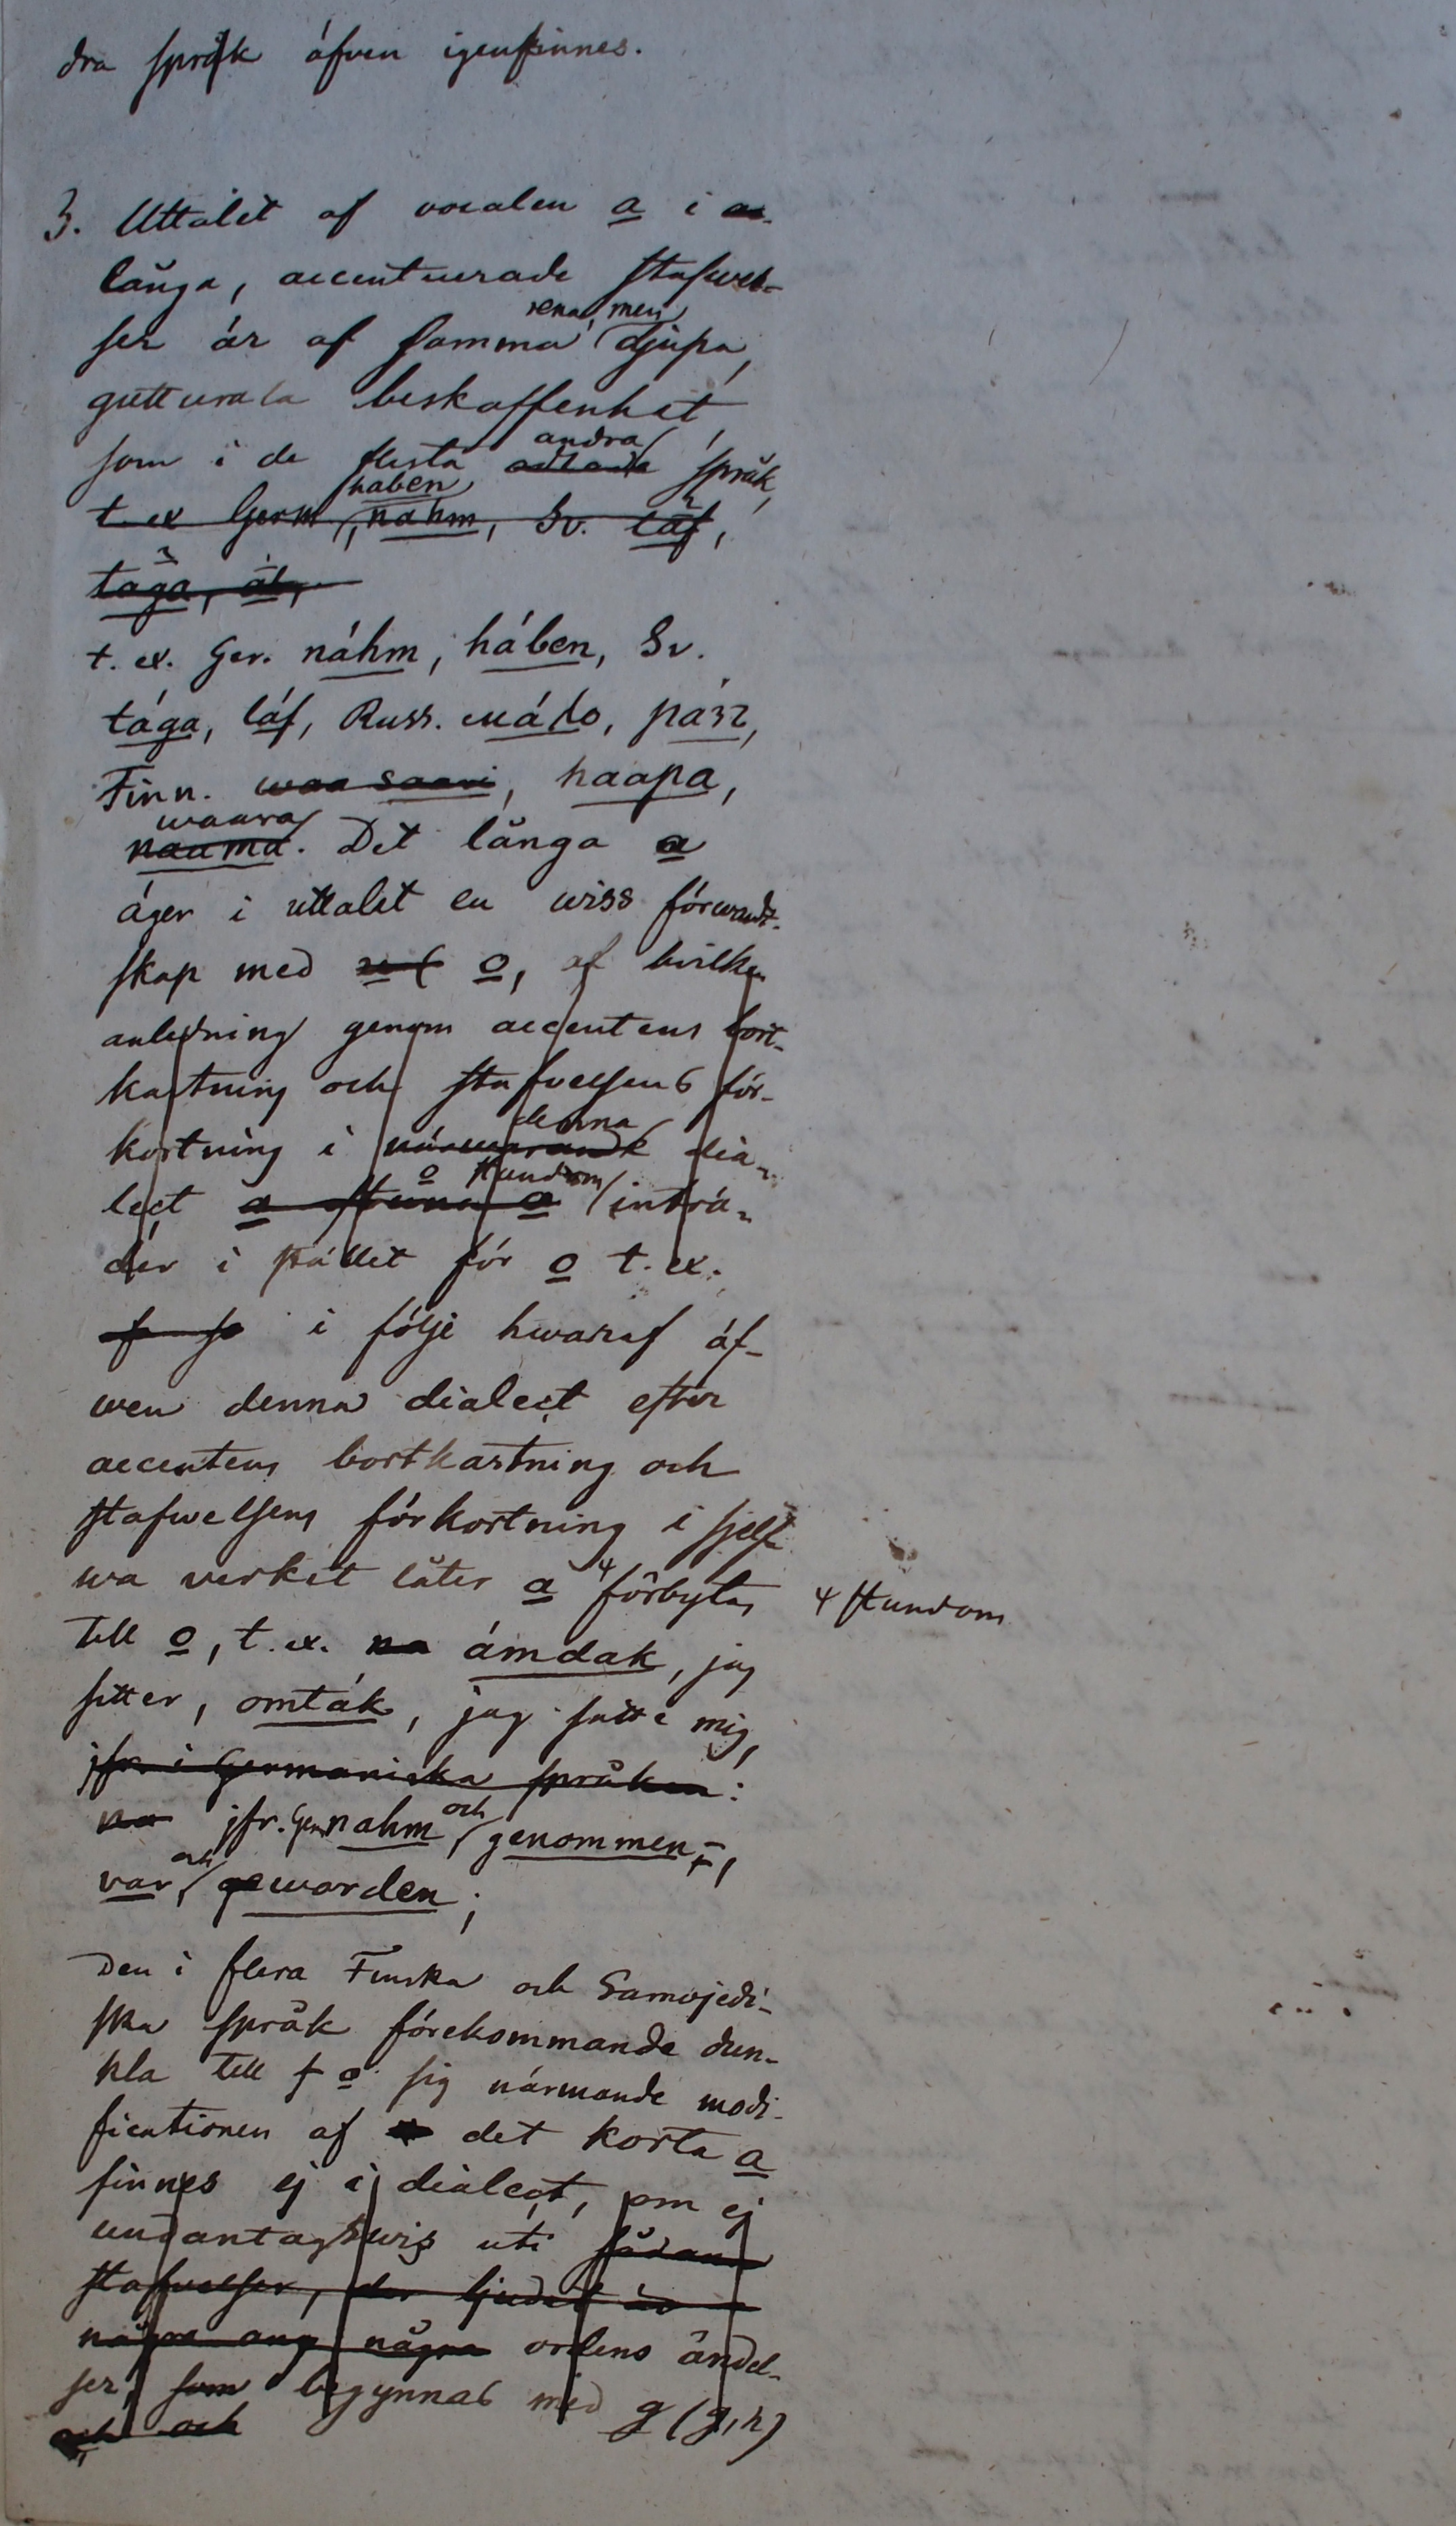 dra språk äfven igenfinnes.
3. Uttalet af vocalen a i
långa, accentuerade stafwel-
rena, men
ser är af samma djupa,
gutturala beskaffenhet,
andra
som i de flesta språk,
haben
t. ex Germ, nahm, Sv. låf,
tåga,
t. ex. Ger. náhm, háben, Sv.
tága, láf, Russ. мáло, pász,
Finn. waa saari, haapa,
waara
naama. Det långa a
äger i uttalet en wiss förwandt-
skap med o, af hvilken
anledning genom accentens bort-
kastning och stafvelsens för-
denna
kortning i närwarande dia-
o stundom
lect a inträ-
der i stället för o t. ex.
i följe hwaraf äf-
wen denna dialect efter
accentens bortkastning och
stafwelsens förkortning i sjelf-
wa verket låter a ⸸ förbytas
⸸ stundom
till o, t. ex. na ámdak, jag
sitter, omták, jag satte mig,
jfr i Germaniska språken:
och
na jfr. Ger. nahm genommen,
och
var, geworden;
Den i flera Finska och Samojedi-
ska språk förekommande dun-
kla till o sig närmande modi-
ficationen af det korta a
finnes ej i dialect, om ej
undantagswis uti sådana
stafvelser, der ljudet är
några ang några ordens ändel-
ser, som begynnas med g (g, h)
och och